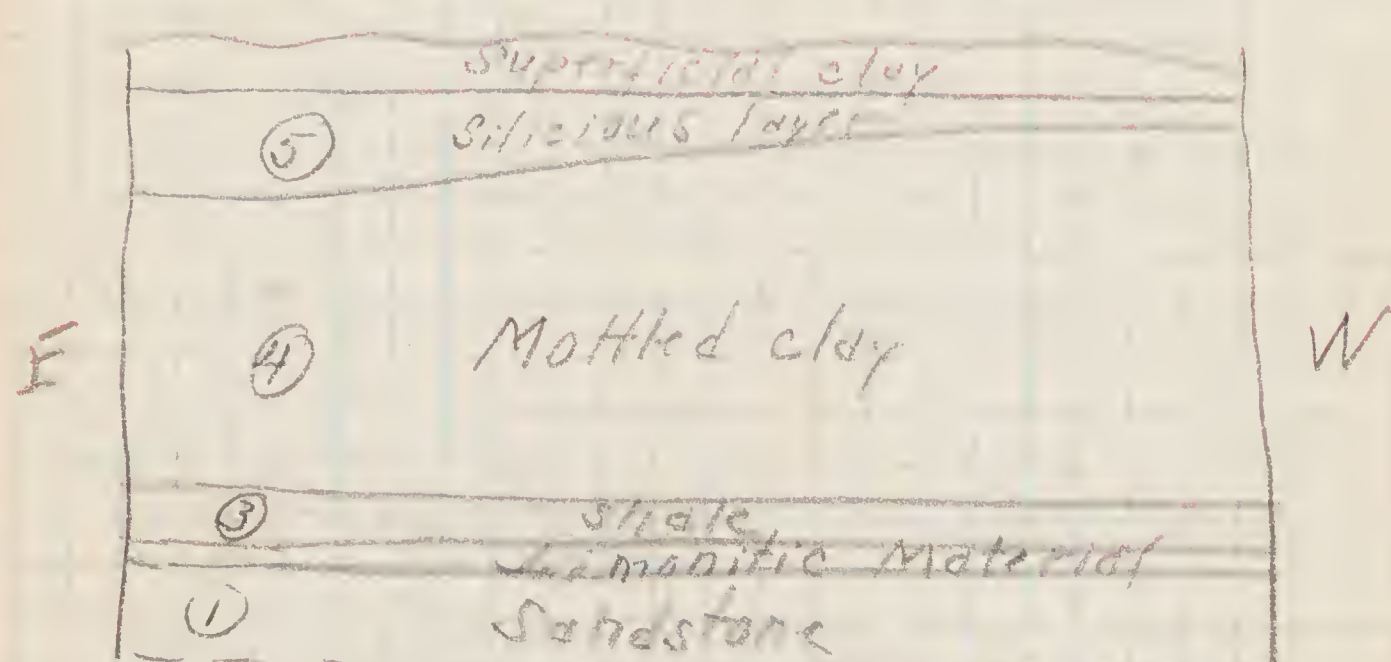 Superficial clay
⑤ Silicious layer
E ④ Mottled clay W
③ Shale
Limonitic Material
① Sandstone